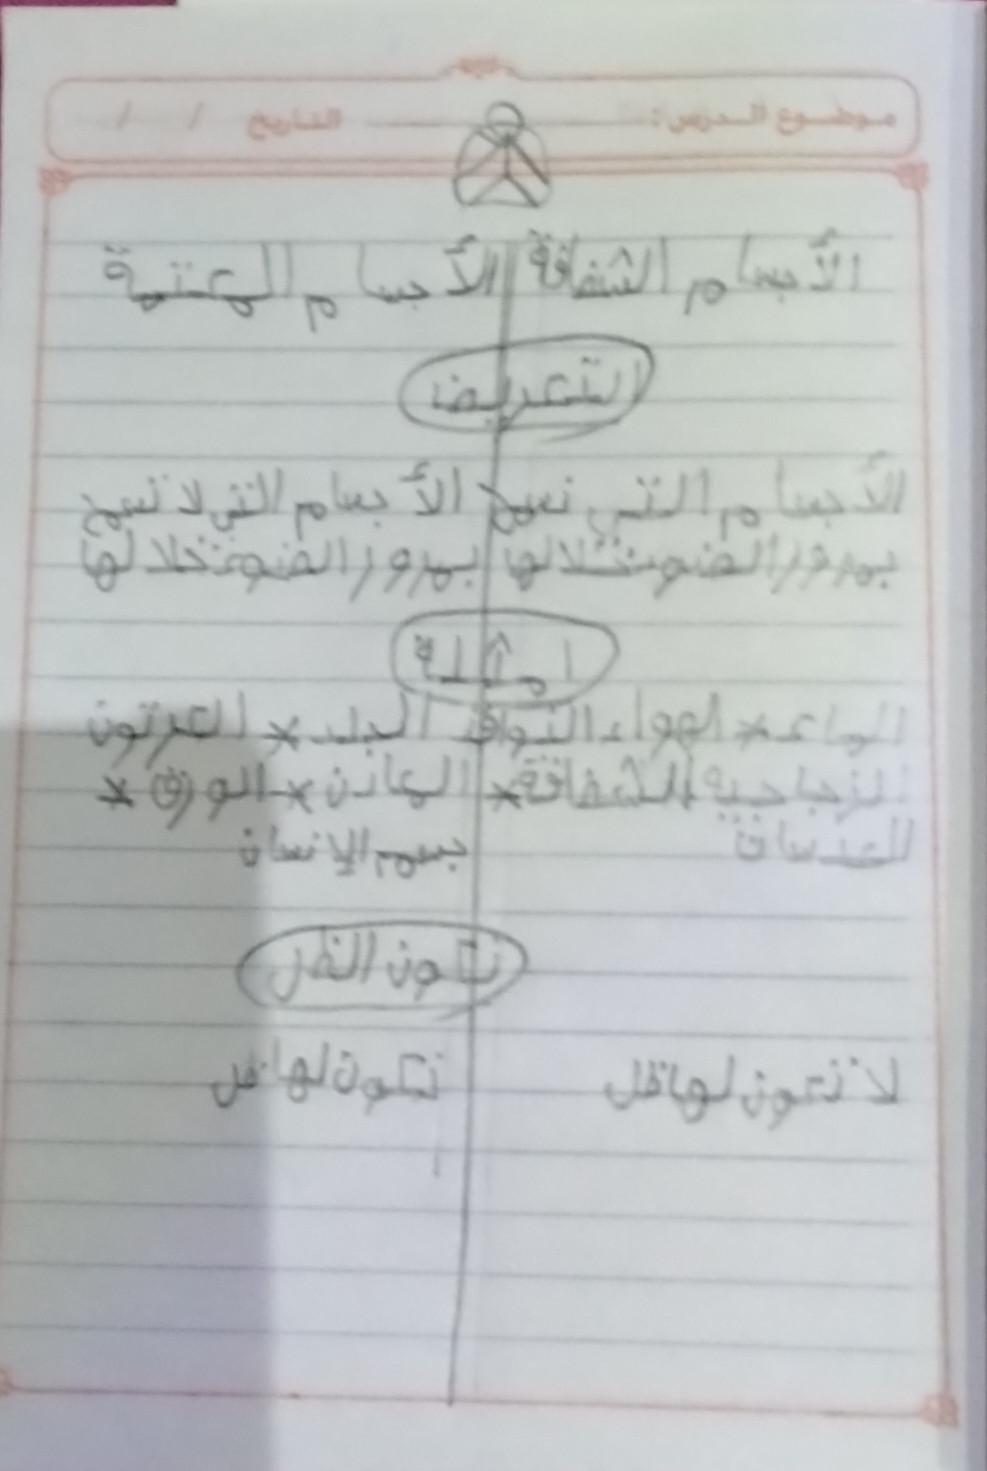 موضوع الدرس: التاريخ / /
الأجسام الشفافة الأجسام المعتمة
التعريف
الأجسام التي تسمح الأجسام التي لا تسمح
بمرور الضوء خلالها بمرور الضوء خلالها
امثلة
الماء * الهواء النوافذ الجلد * الكرتون
الزجاجية الشفافة * المعادن * الورق *
العدسات جسم الإنسان
تكون الظل
لا تتكون لها ظل تتكون لها ظل